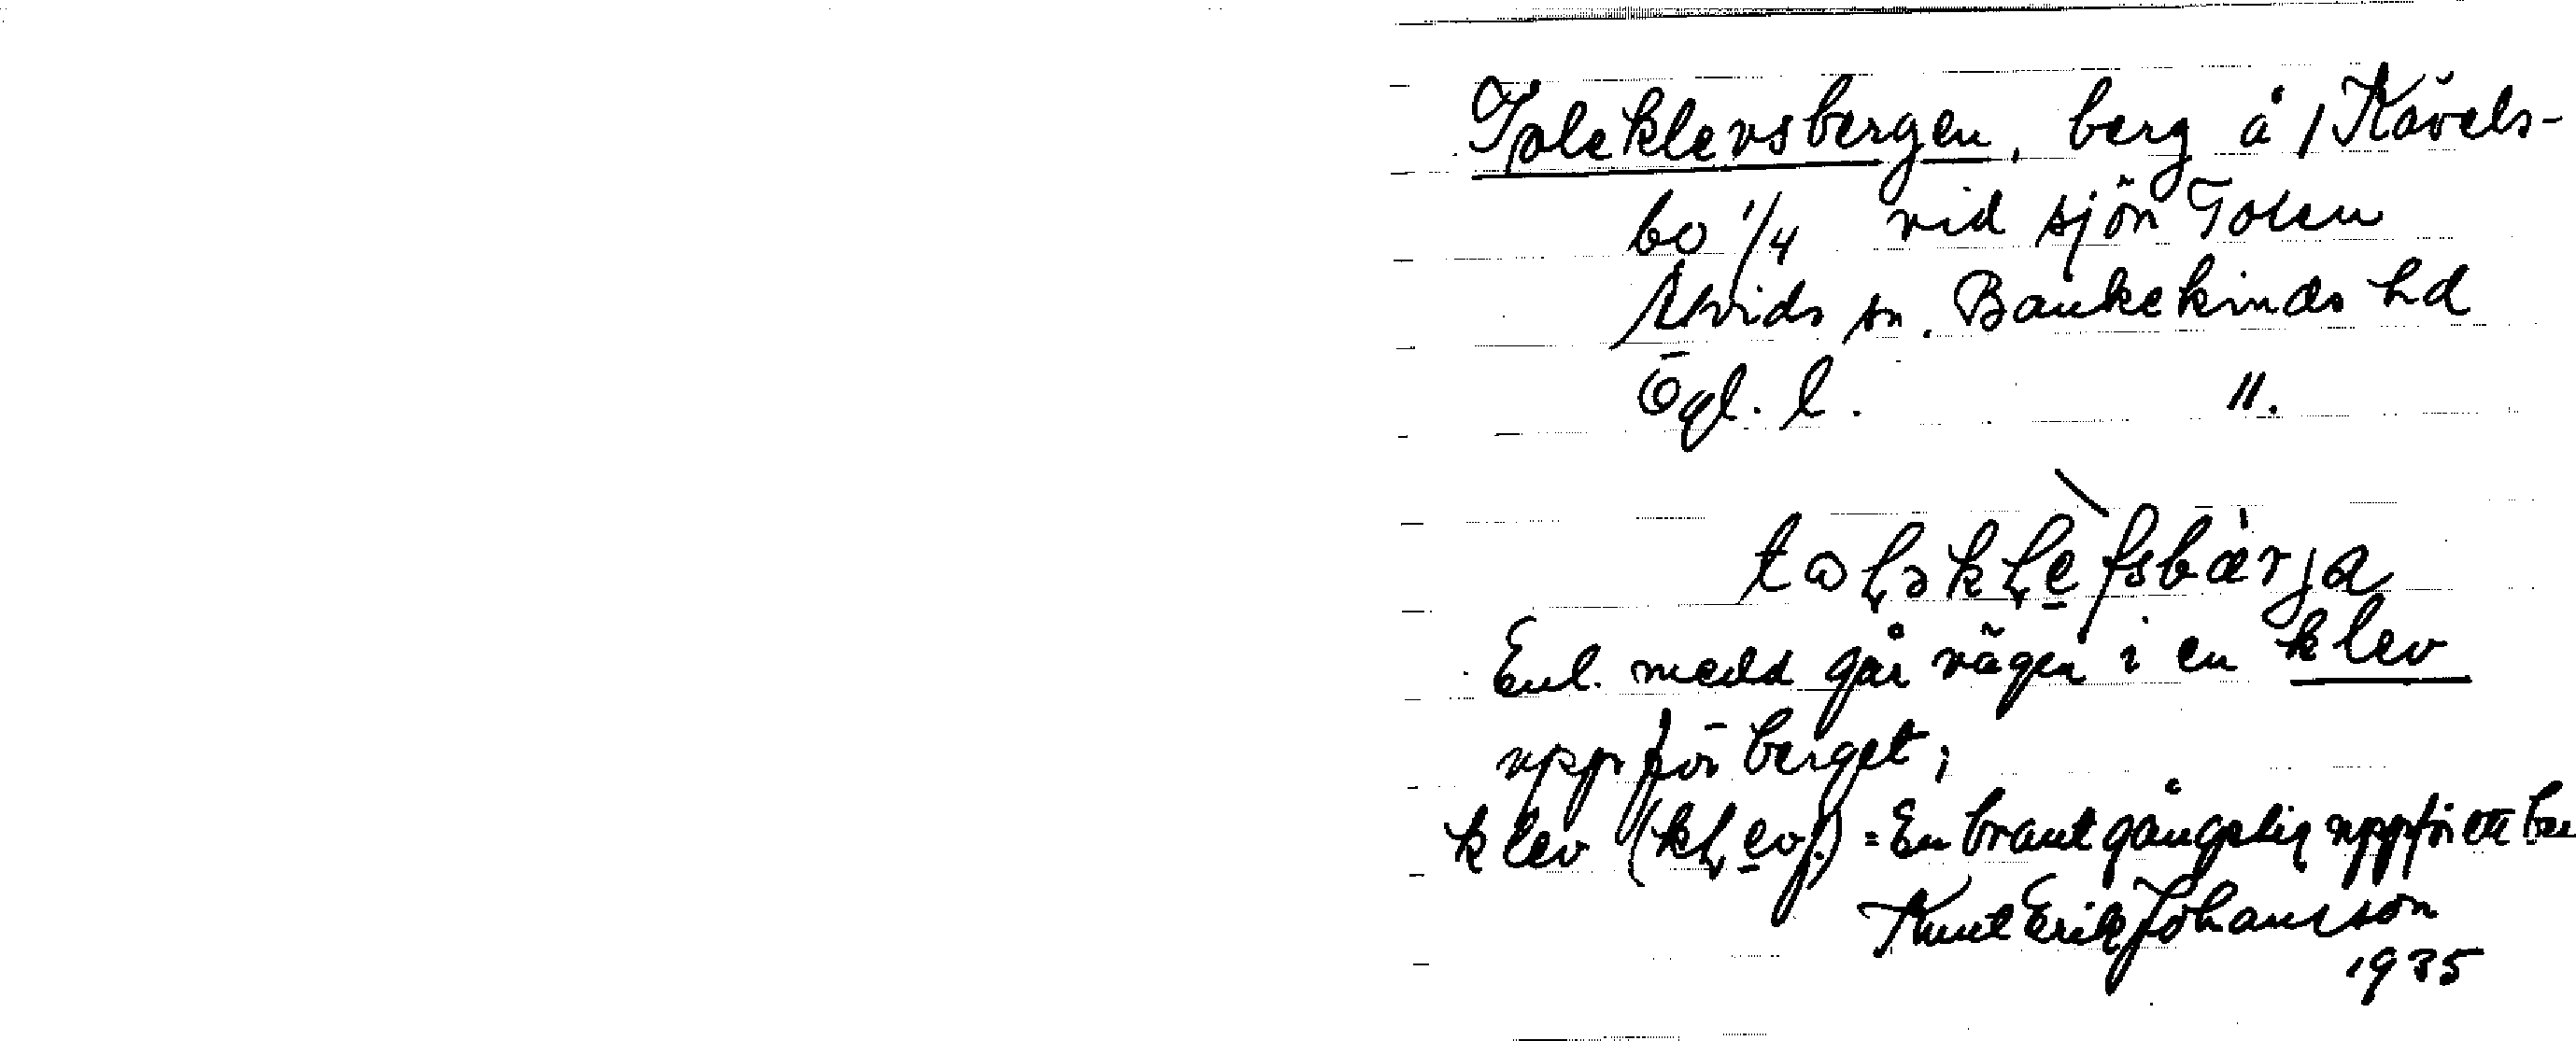 Toleklevsbergen, berg å / Kävels-
bo 1/4 vid sjön Tolen
Åtvids sn. Bankekinds hd
Ögl. l. 11.
Enl. medd går vägen i en klev
uppför berget;
klev = En brant gångstig uppför ett
Knut Erik Johansson
1935